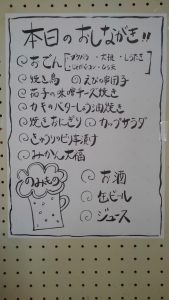 本日のおしながき!!
おでん [・大根 ・しらたき
焼き鳥 えびの串団子
茄子の味噌チーズ焼き
カキのバターしょうゆ焼き
焼きおにぎり カップサラダ
きゅうりのピリ辛漬け
みかん大福
のみもの
お酒
缶ビール
ジュース